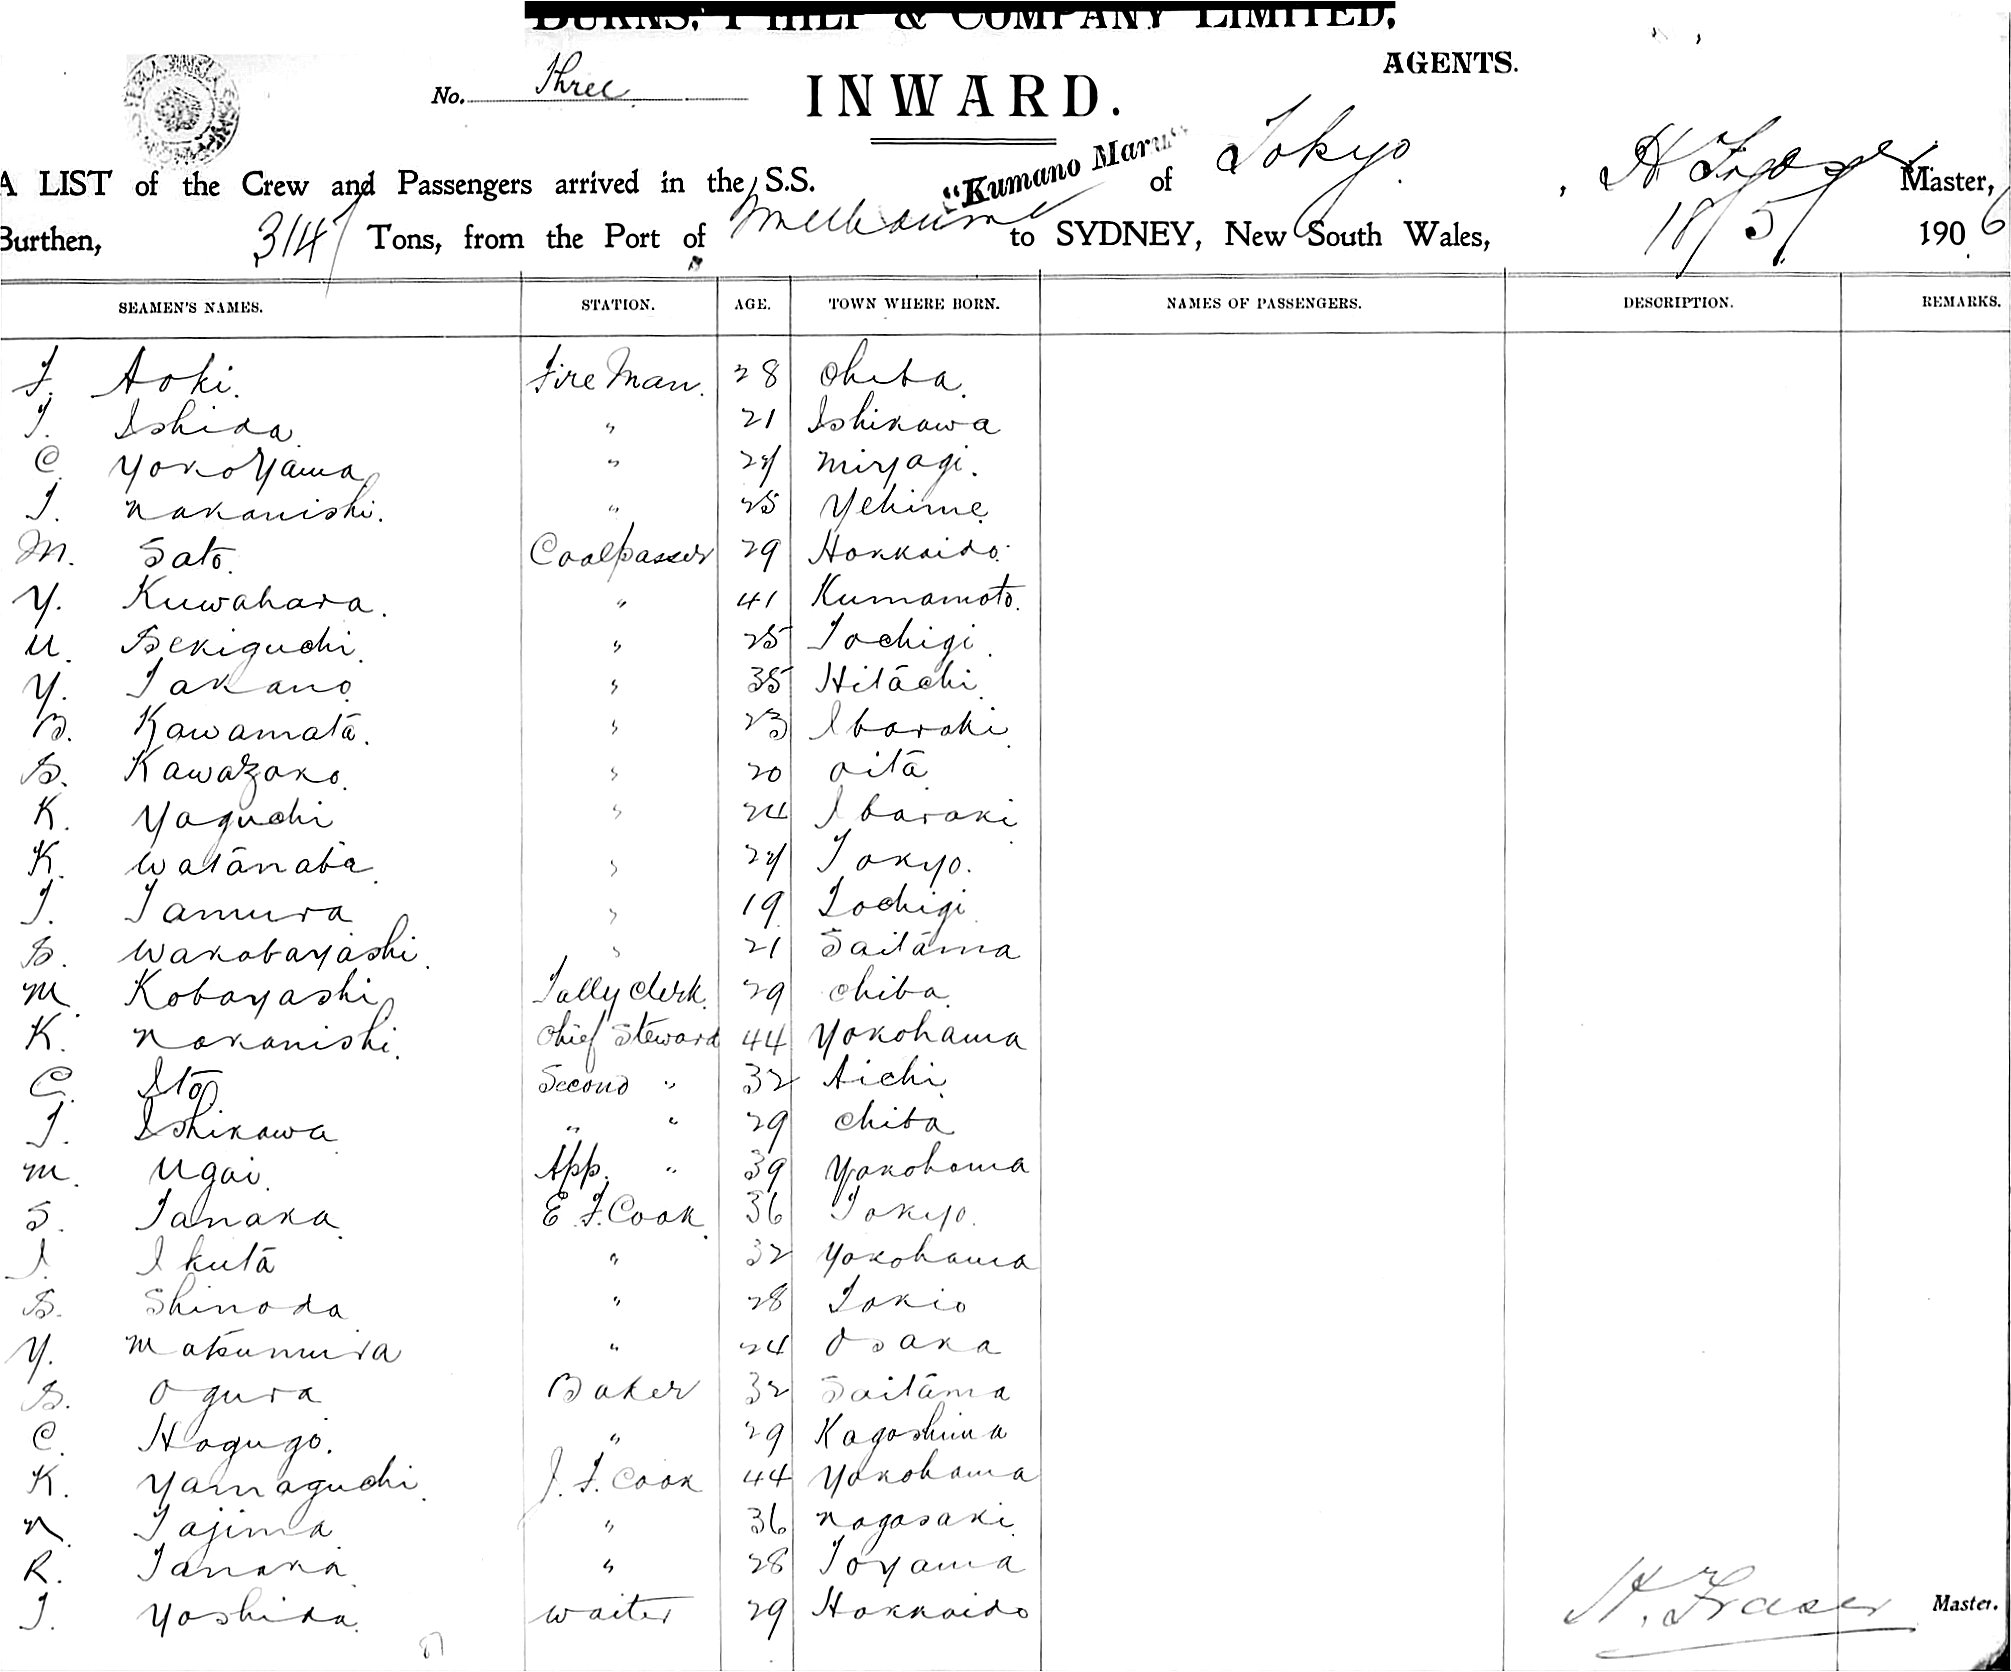 BURNS, PHILP & COMPANY LIMITED,
AGENTS.
No. Three.
INWARD.
A LIST of the Crew and Passengers arrived in the S.S. "Kumano Maru" of Tokyo, H Fraser Master,
Burthen, 3147 Tons, from the Port of Melbourne to SYDNEY, New South Wales, 18/5/ 1906
SEAMEN'S NAMES. STATION. AGE. TOWN WHERE BORN. NAMES OF PASSENGERS. DESCRIPTION. REMARKS.
F. Aoki. Fire Man. 28 Chiba.
T. Ishida. " 21 Ishikawa
C. Yokoyama " Miyagi.
T. Nakanishi. " 25 Yehime.
M. Sato. Coalpasser 29 Hokkaido.
Y. Kuwahara. " 41 Kumamoto.
U. Sekiguchi. " 25 Tochigi.
Y. Takano. " 35 Hitachi.
B. Kawamata. " 23 Ibaraki.
S. Kawazoko. " 20 Oita
K. Yaguchi " 24 Ibaraki
K. Watanabe. " Tokyo.
T. Tamura " 19 Tochigi.
S. Wakabayashi. " 21 Saitama
M. Kobayashi Tally Clerk. 29 Chiba.
K. Nakanishi. Chief Steward 44 Yokohama
C. Ito Second " 32 Aichi.
T. Ishikawa " " 29 Chiba
M. Ugai. App. " 39 Yokohama
S. Tanaka. E. F. Cook. 36 Tokyo.
I. Ikuta " 32 Yokohama
S. Shinoda " 28 Tokio
Y. Matsumura " 24 Osaka
S. Ogura Baker 32 Saitama
C. Hogugo. " 29 Kagoshima
K. Yamaguchi. J. F. Cook 44 Yokohama
N. Tajima " 36 Nagasaki.
R. Tanaka. " 28 Toyama
T. Yoshida. Waiter 29 Hokkaido
H. Fraser Master.